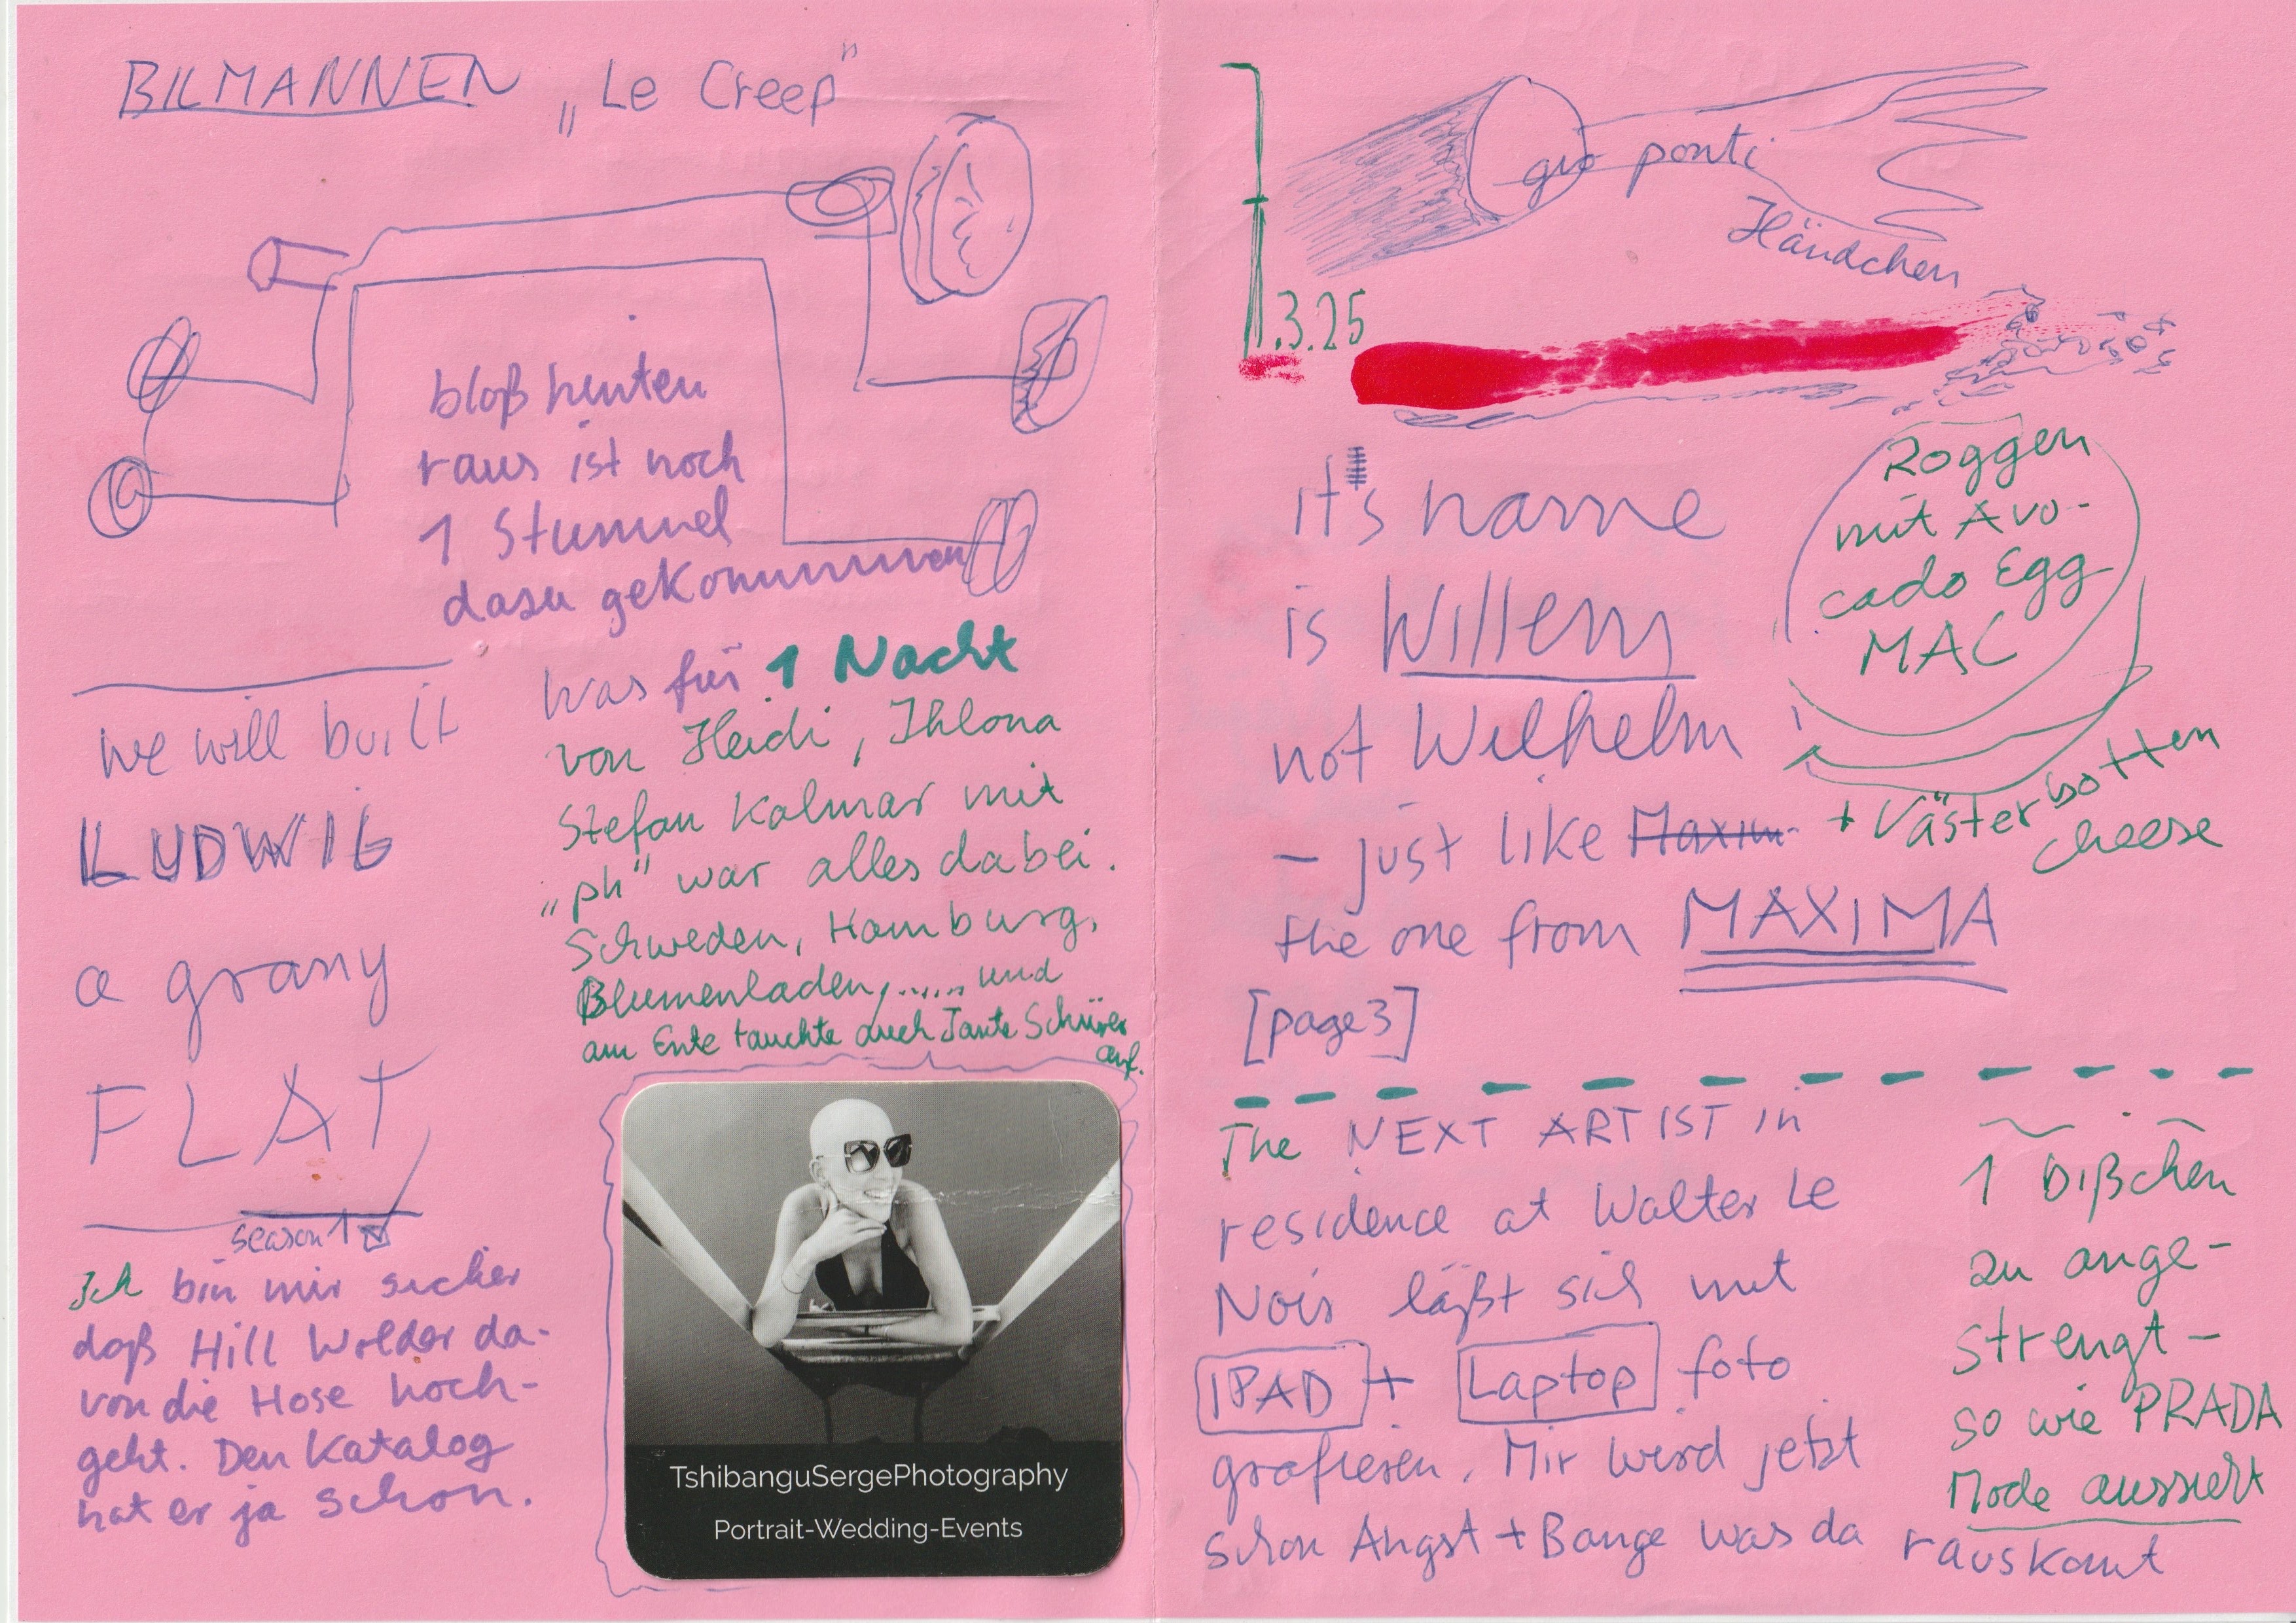 BILMANNEN „Le Creep"
bloß hinten
raus ist noch
1 Stummel
dasu gekommmmen
we will built
LUDWIG
a grany
FLAT
season 1
Ich bin mir sicher
daß Hill Wolder da-
von die Hose hoch-
geht. Den Katalog
hat er ja schon.
Was für 1 Nacht
von Heidi, Ihlona
Stefan Kalmar mit
„ph" war alles dabei.
Schweden, Hamburg,
Blumenladen,...... und
am Ente tauchte auch Tante Schürer
auf.
TshibanguSergePhotography
Portrait-Wedding-Events
gio ponti
Händchen
1.3.25
it's name
is Willem
not Wilhelm
– just like Maxim
the one from MAXIMA
[page3]
Roggen
mit Avo-
cado Egg
MAC
+ Västerbotten
cheese
The NEXT ARTIST in
residence at Walter Le
Noir läßt sich mit
IPAD + Laptop foto
grafieren. Mir wird jetzt
schon Angst + Bange was da rauskomt
1 bißchen
zu ange-
strengt –
so wie PRADA
Mode aussieht